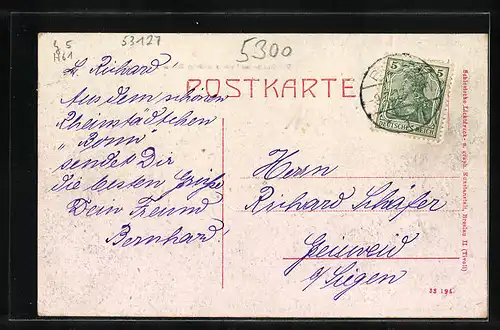 45
1961
53127
5300
POSTKARTE
L. Richard!
Aus dem schönen
Rheinstädtchen
„Bonn"
sendet Dir
die besten Grüße
Dein Freund
Bernhard!
5 5
DEUTSCHES REICH
Herrn
Richard Schäfer
Geisweid
b/Siegen
Schlesische Lichtdruck- u. graph. Kunstanstalt, Breslau II (Tivoli)
33 194.